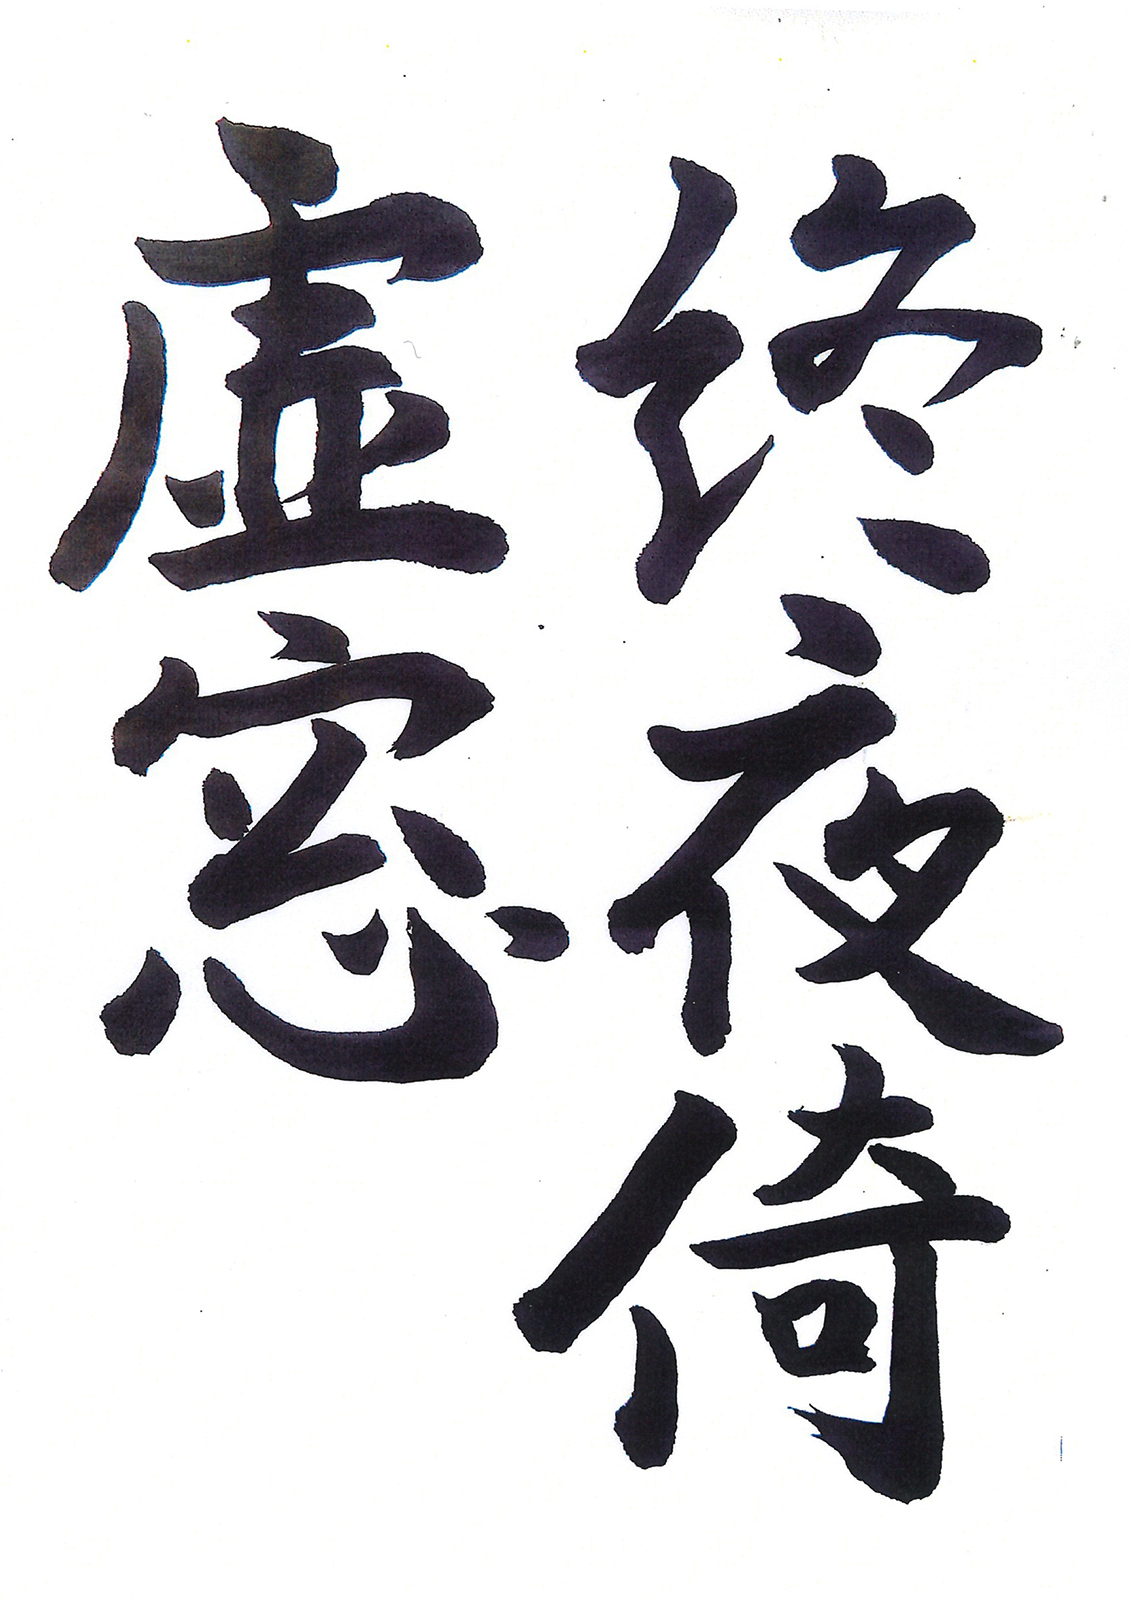 終夜倚
虚窓